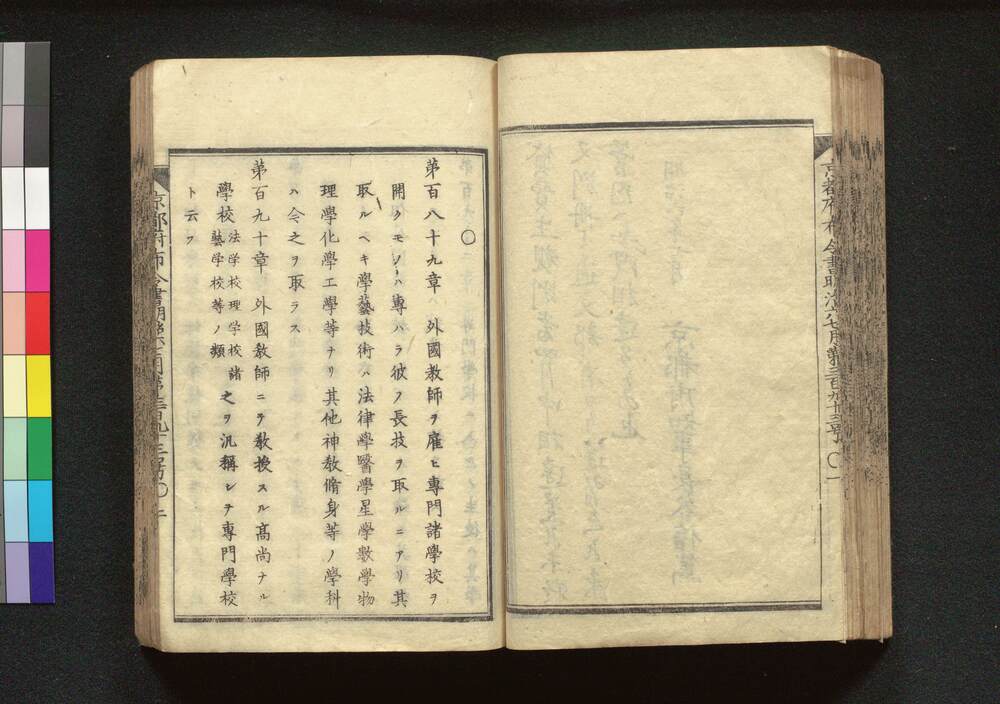 京都府布令書明治六年七月第三百九十三号〇一
〇
第百八十九章 外國教師ヲ雇ヒ専門諸學校ヲ
開クモノハ専ハラ彼ノ長技ヲ取ルニアリ其
取ルヘキ學藝技術ハ法律學醫學星學數學物
理學化學工學等ナリ其他神教脩身等ノ學科
ハ今之ヲ取ラス
第百九十章 外國教師ニテ教授スル髙尚ナル
學校 法学校理学校諸藝学校等ノ類 之ヲ汎稱シテ専門學校
ト云フ